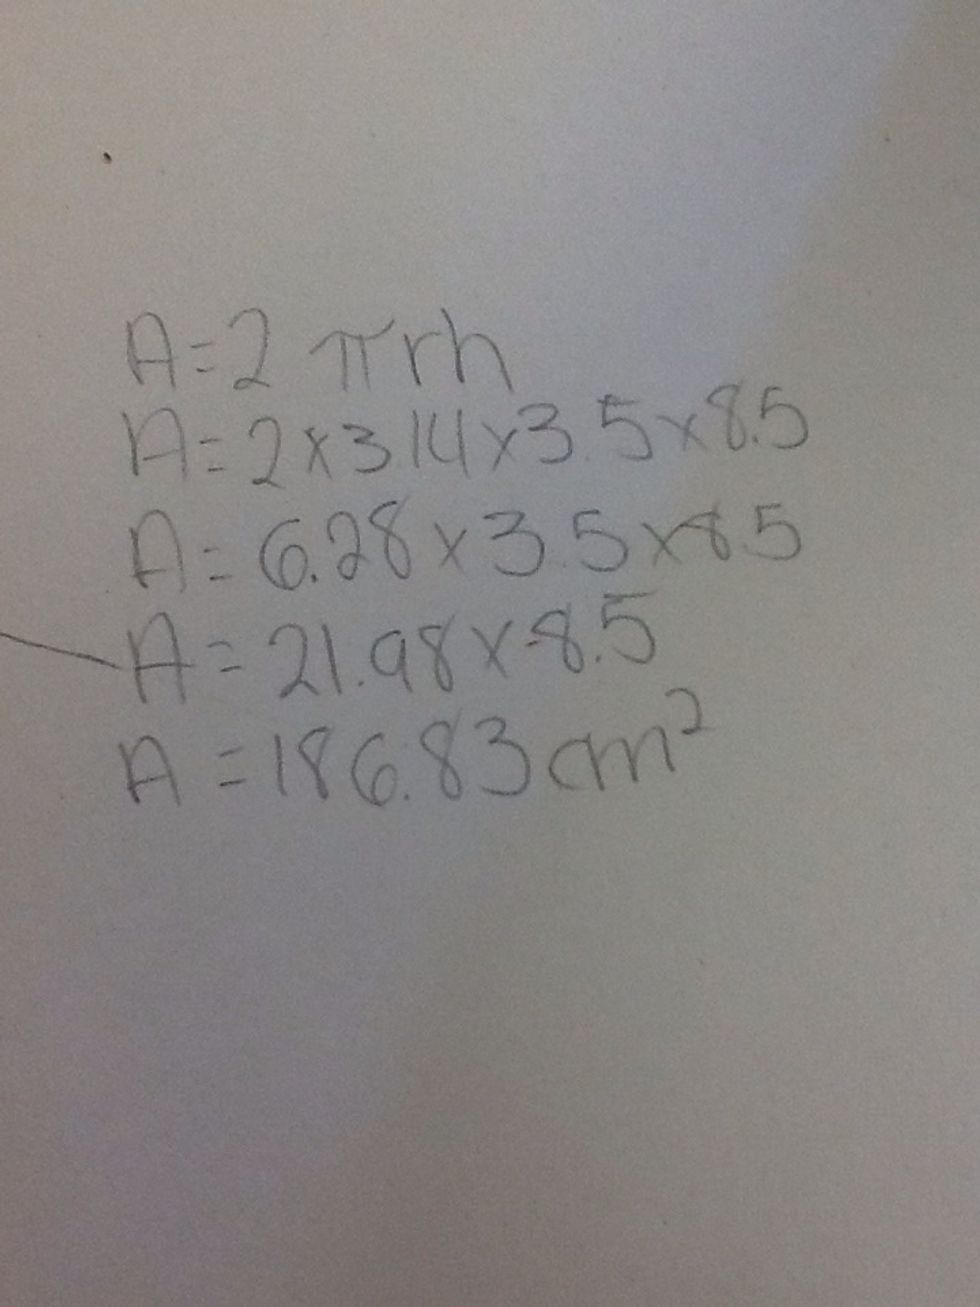 A=2 πrh
A=2×3.14×3.5×8.5
A=6.28×3.5×8.5
A=21.98×8.5
A=186.83cm²